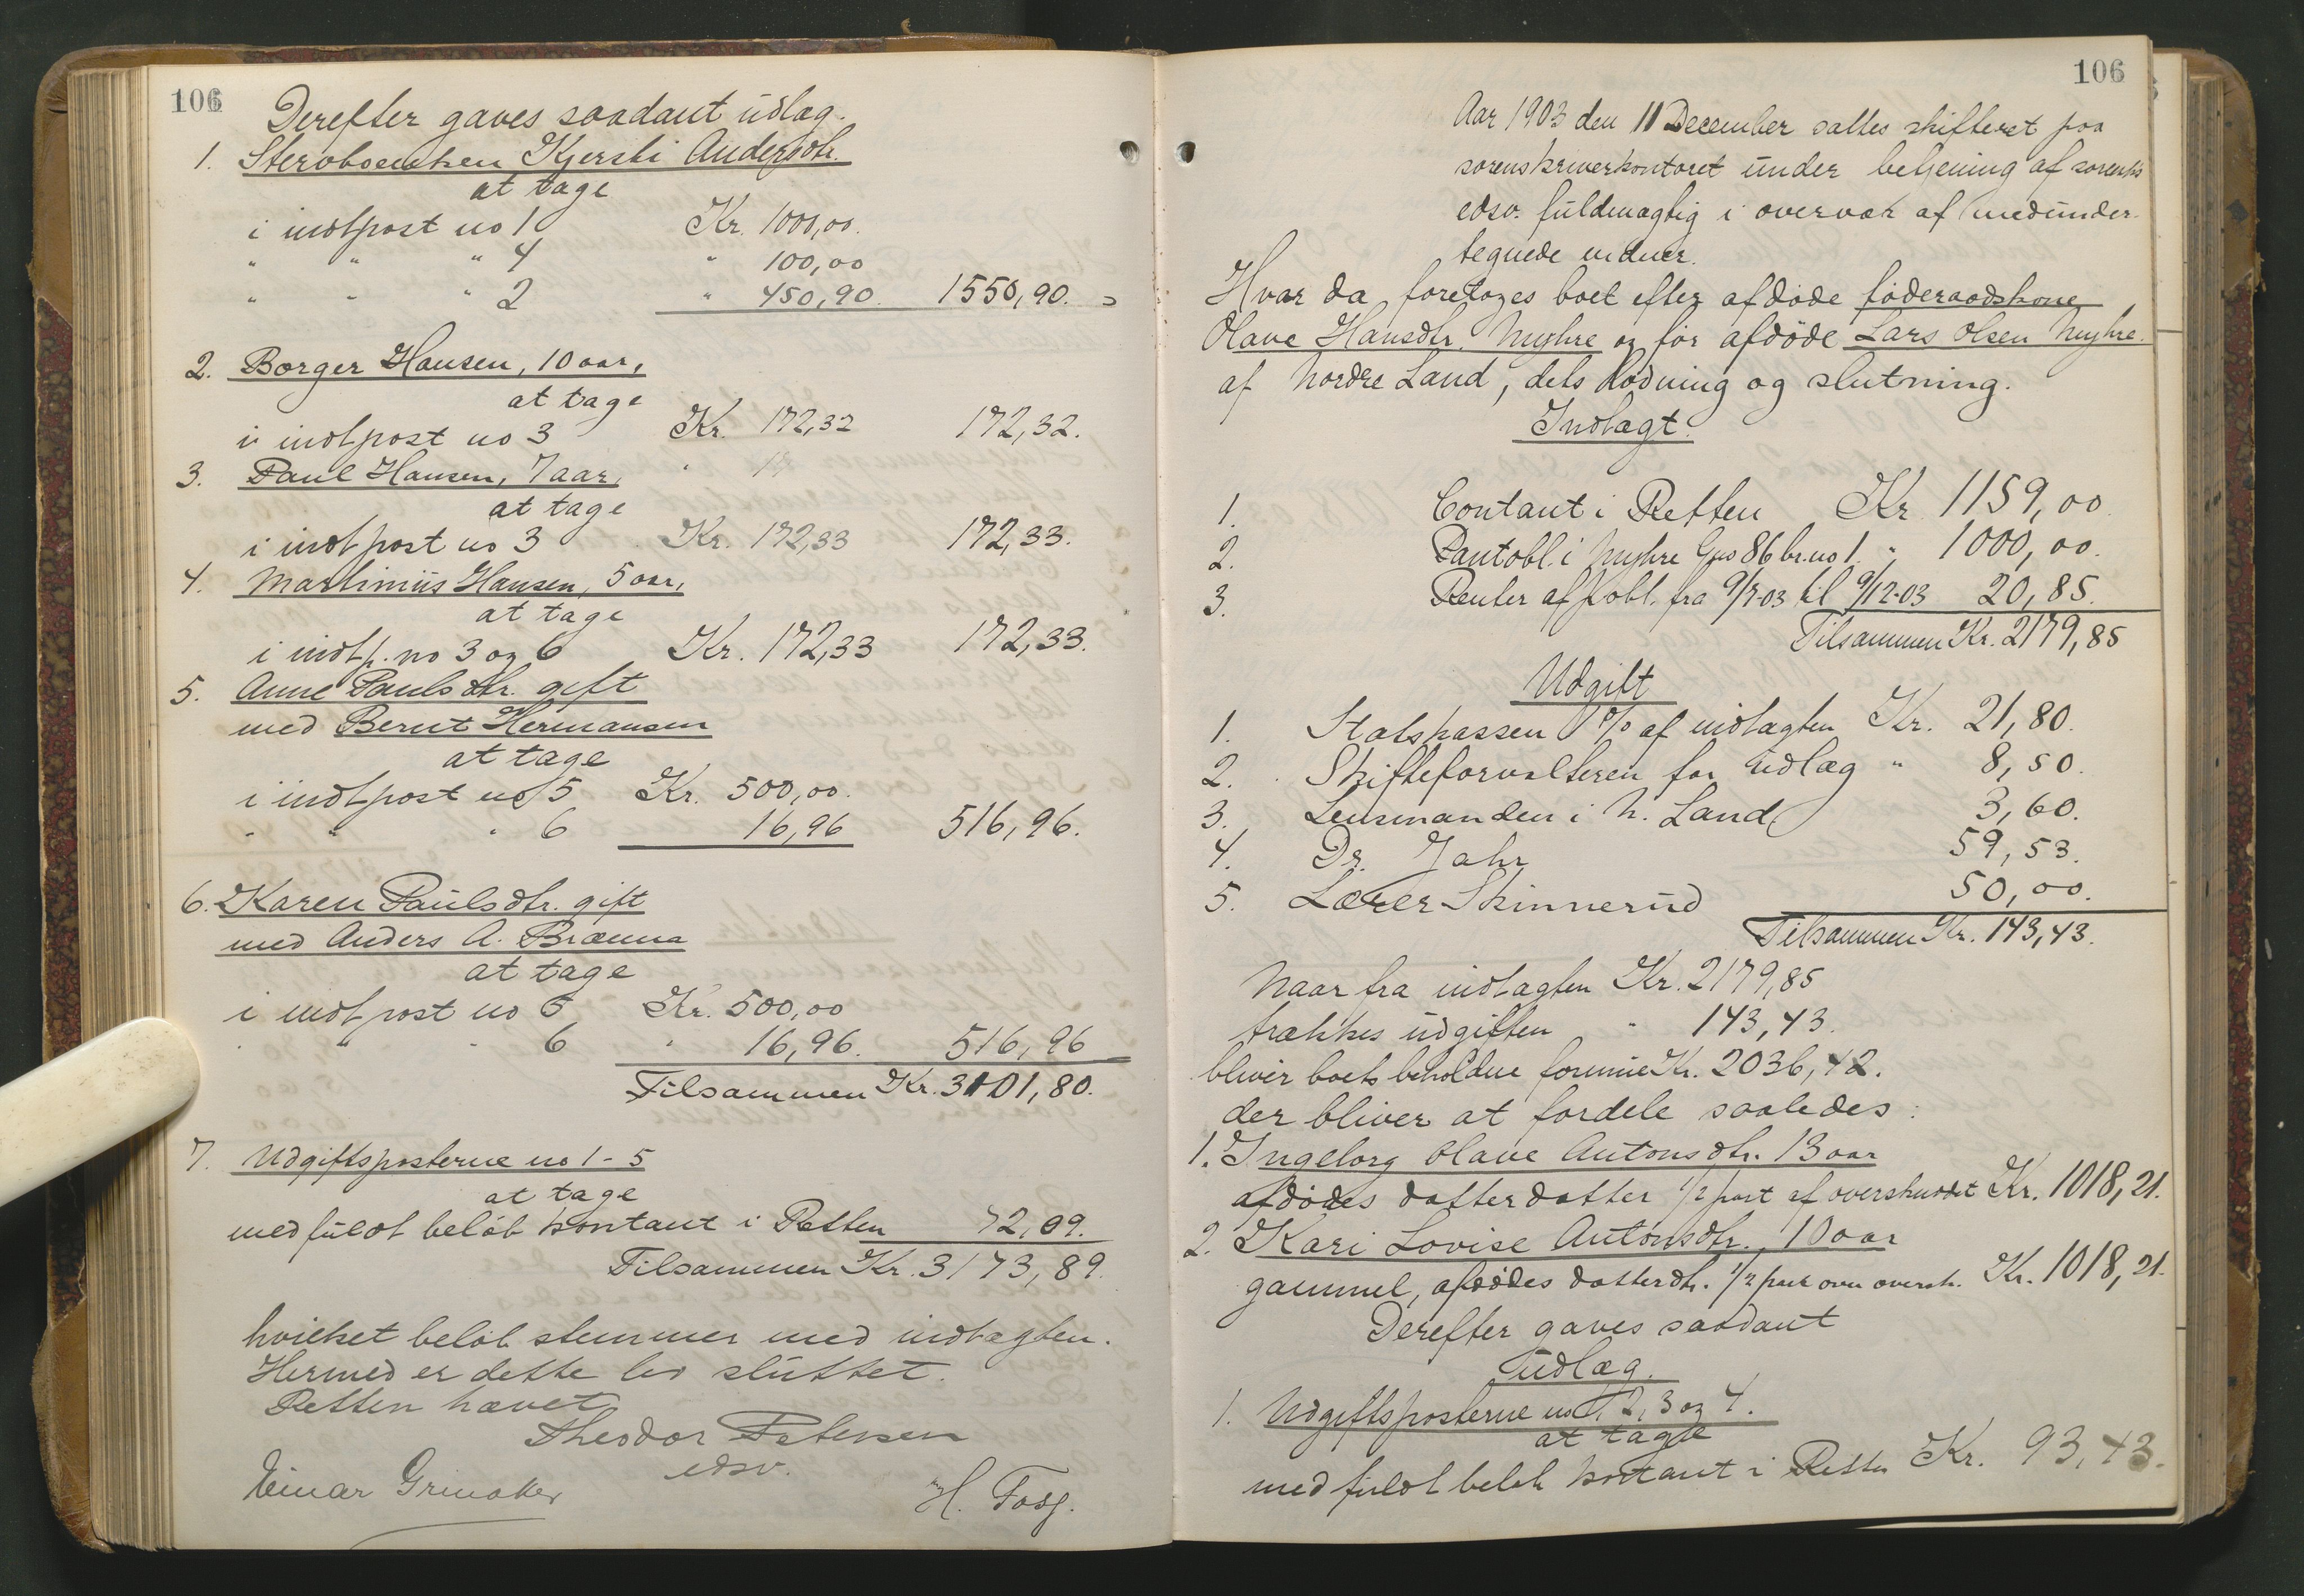 106
Derefter gaves saadant udlæg.
1. Stervboenken Kjersti Andersdtr.
at tage
i indtpost no 1 Kr. 1000,00.
" " " 4 " 100,00
" " " 2 " 450,90. 1550,90.
2. Borger Hansen, 10 aar,
at tage
i indtpost no 3 Kr. 172,32 172,32.
3. Paul Hansen, 7 aar,
at tage
i indtpost no 3 Kr. 172,33 172,33.
4. Martinius Hansen, 5 aar,
at tage
i indtp. no 3 og 6 Kr. 172,33 172,33.
5. Anne Paulsdtr. gift
med Bernt Hermansen
at tage
i indtpost no 5 Kr. 500,00.
" " " 6 16,96 516,96.
6. Karen Paulsdtr. gift
med Anders A. Brænna
at tage
i indtpost no 5 Kr. 500,00
" " " 6 " 16,96. 516,96
Tilsammen Kr. 3101,80.
7. Udgiftsposterne no 1-5
at tage
med fuldt beløb kontant i Retten 72,09.
Tilsammen Kr. 3173,89.
hvilket beløb stemmer med indtægten.
Hermed er dette bo sluttet.
Retten hævet
Theodor Petersen
edsv.
Einar Grinaker H. Fosg.
106
Aar 1903 den 11 December sattes skifteret paa
sorenskriverkontoret under betjening af sorenskr
edsv. fuldmægtig i overvær af medunder-
tegnede vidner.
Hvor da foretoges boet efter afdøde føderaadskone
Olave Hansdtr. Myhre og før afdøde Lars Olsen Myhre.
af Nordre Land, dets lodning og slutning.
Indtægt.
1. Contant i Retten Kr 1159,00.
2. Pantobl. i Myhre Gno 86 br. no 1. " 1000,00.
3. Renter af pobl. fra 9/7-03 til 9/12-03 20,85.
Tilsammen Kr. 2179,85
Udgift
1. Statskassen 1% af indtægten Kr. 21,80.
2. Skifteforvalteren for udlæg " 8,50.
3. Lensmanden i N. Land 3,60.
4. Dr. Jahr 59,53.
5. Lærer Skinnerud 50,00.
Tilsammen Kr. 143,43.
Naar fra indtægten Kr. 2179,85
trækkes udgiften " 143,43.
bliver boets beholdne formue Kr. 2036,42.
der bliver at fordele saaledes:
1. Ingeborg Olave Antonsdtr. 13 aar
afdødes datterdatter 1/2 part af overskuddet Kr. 1018,21.
2. Kari Lovise Antonsdtr., 10 aar
gammel, afdødes datterdtr. 1/2 part oversk. Kr. 1018,21.
Derefter gaves saadant
udlæg.
1. Udgiftsposterne no 1, 2, 3 og 4.
at tage
med fuldt beløb kontant i Retten Kr. 93,43.